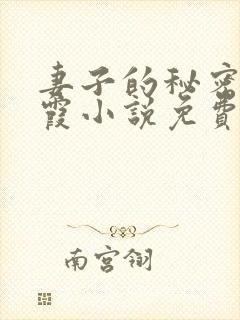 妻子的秘密
霞小説免費
南宮翎